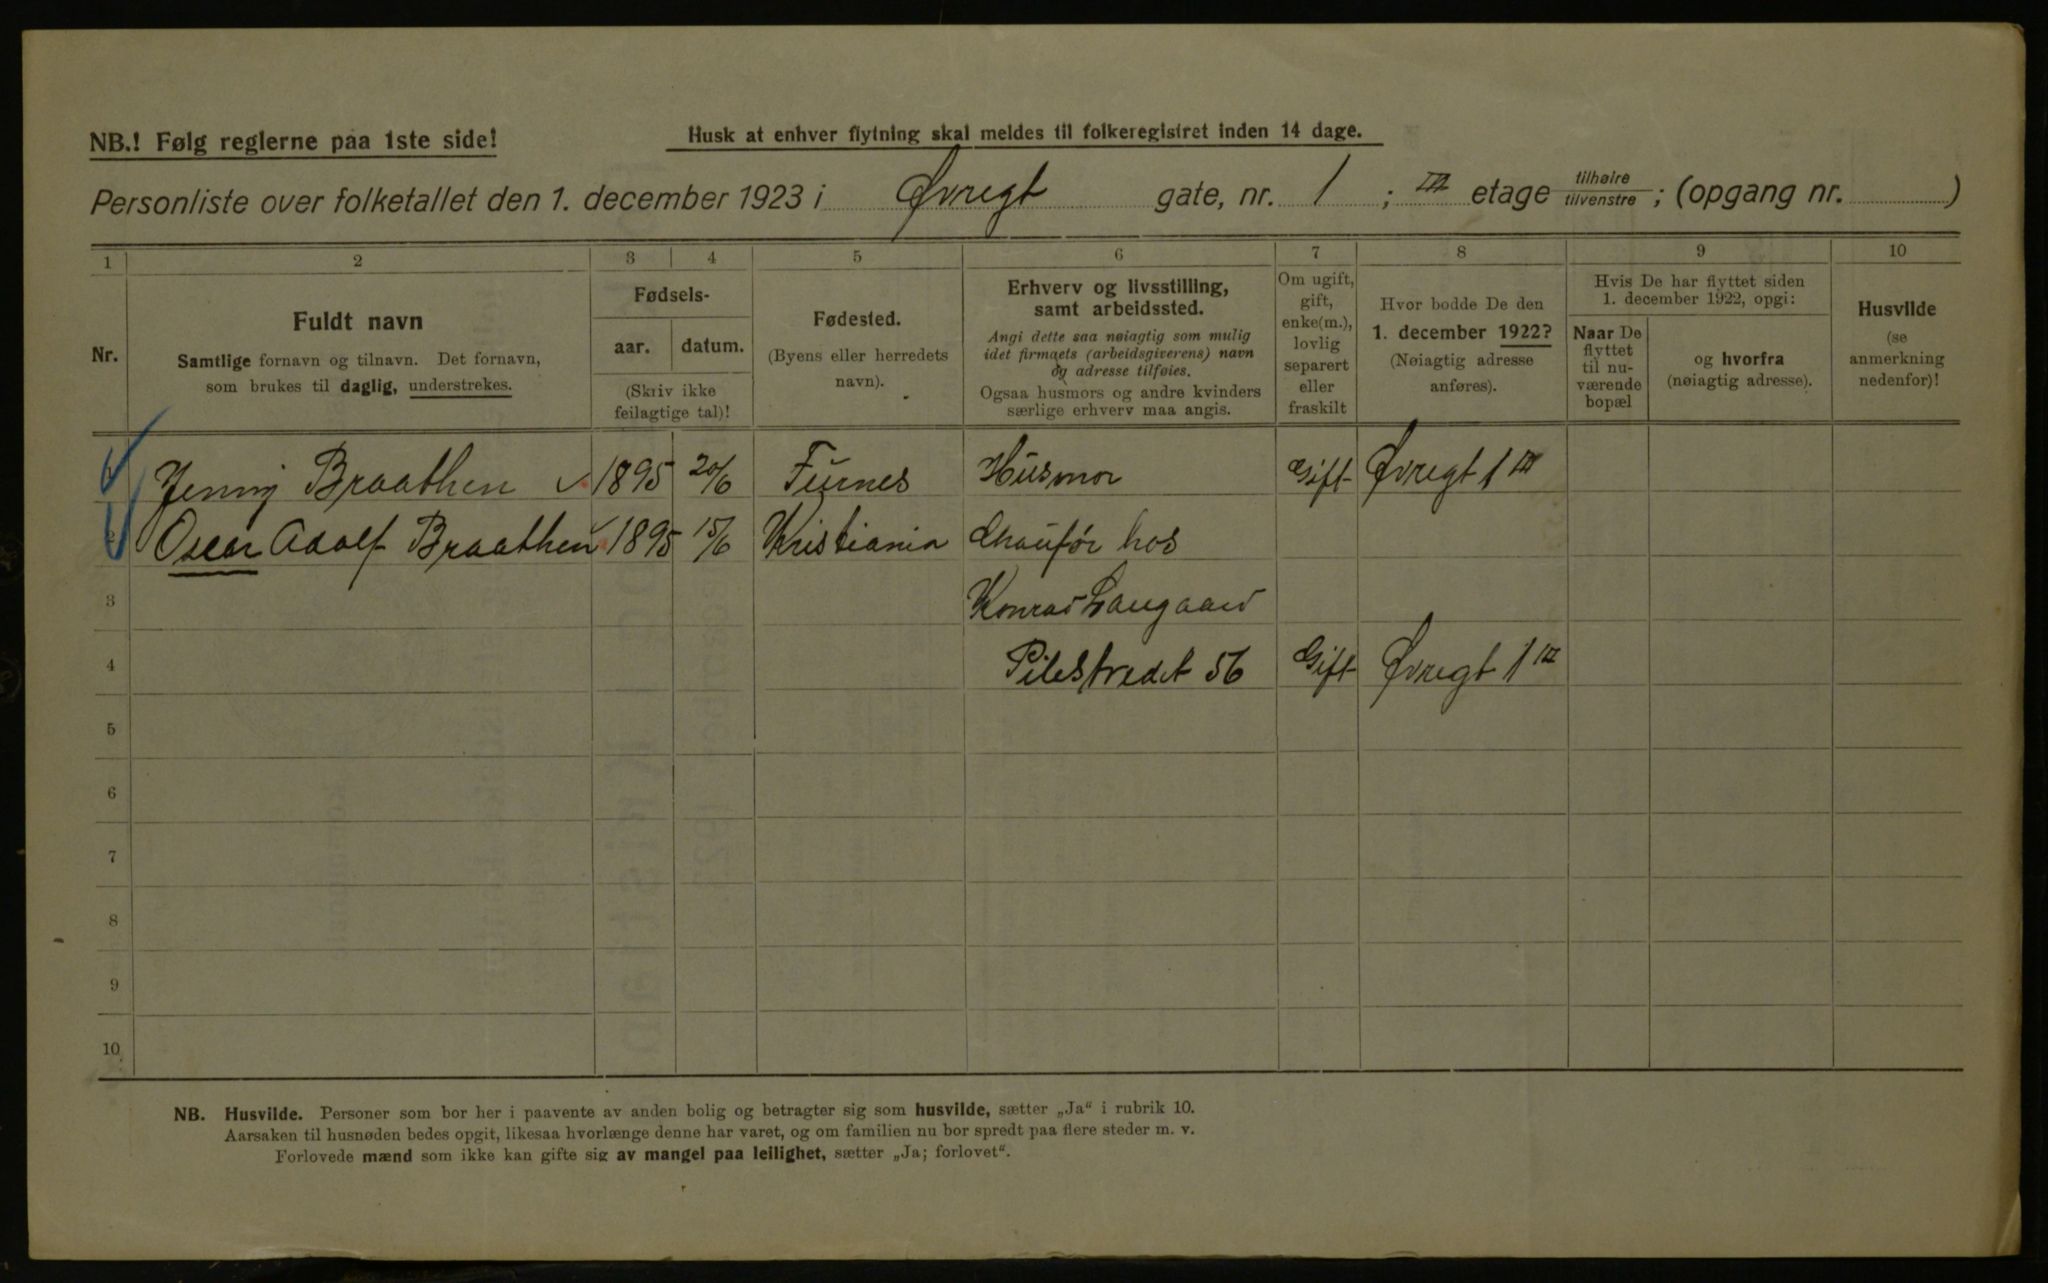 NB.! Følg reglerne paa 1ste side!
Husk at enhver flytning skal meldes til folkeregistret inden 14 dage.
Personliste over folketallet den 1. december 1923 i Øvregt gate, nr. 1 ; III etage tilhøire tilvenstre ; (opgang nr. )
1 2 3 4 5 6 7 8 9 10
Nr.
Fuldt navn
Samtlige fornavn og tilnavn. Det fornavn,
som brukes til daglig, understrekes.
Fødsels-
aar. datum.
(Skriv ikke
feilagtige tal)!
Fødested.
(Byens eller herredets
navn).
Erhverv og livsstilling,
samt arbeidssted.
Angi dette saa nøiagtig som mulig
idet firmaets (arbeidsgiverens) navn
og adresse tilføies.
Ogsaa husmors og andre kvinders
særlige erhverv maa angis.
Om ugift,
gift,
enke(m.),
lovlig
separert
eller
fraskilt
Hvor bodde De den
1. december 1922?
(Nøiagtig adresse
anføres).
Hvis De har flyttet siden
1. december 1922, opgi:
Naar De
flyttet
til nu-
værende
bopæl
og hvorfra
(nøiagtig adresse).
Husvilde
(se
anmerkning
nedenfor)!
1 Jenny Braathen 1895 20/6 Furnes Husmor Gift Øvregt 1 III
2 Oscar Adolf Braathen 1895 15/6 Kristiania Chaufør hos
3 Konrad Langaard
4 Pilestredet 56 Gift Øvregt 1 III
5
6
7
8
9
10
NB. Husvilde. Personer som bor her i paavente av anden bolig og betragter sig som husvilde, sætter „Ja“ i rubrik 10.
Aarsaken til husnøden bedes opgit, likesaa hvorlænge denne har varet, og om familien nu bor spredt paa flere steder m. v.
Forlovede mænd som ikke kan gifte sig av mangel paa leilighet, sætter „Ja; forlovet“.